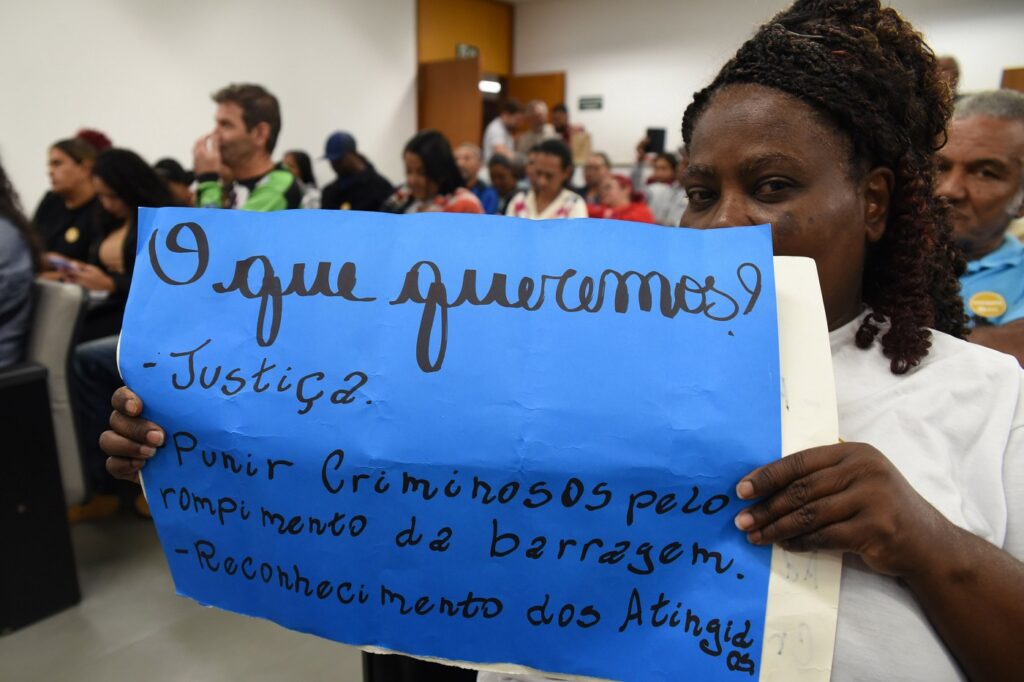 O que queremos?
- Justiça.
Punir Criminosos pelo
rompimento da barragem.
- Reconhecimento dos Atingidos